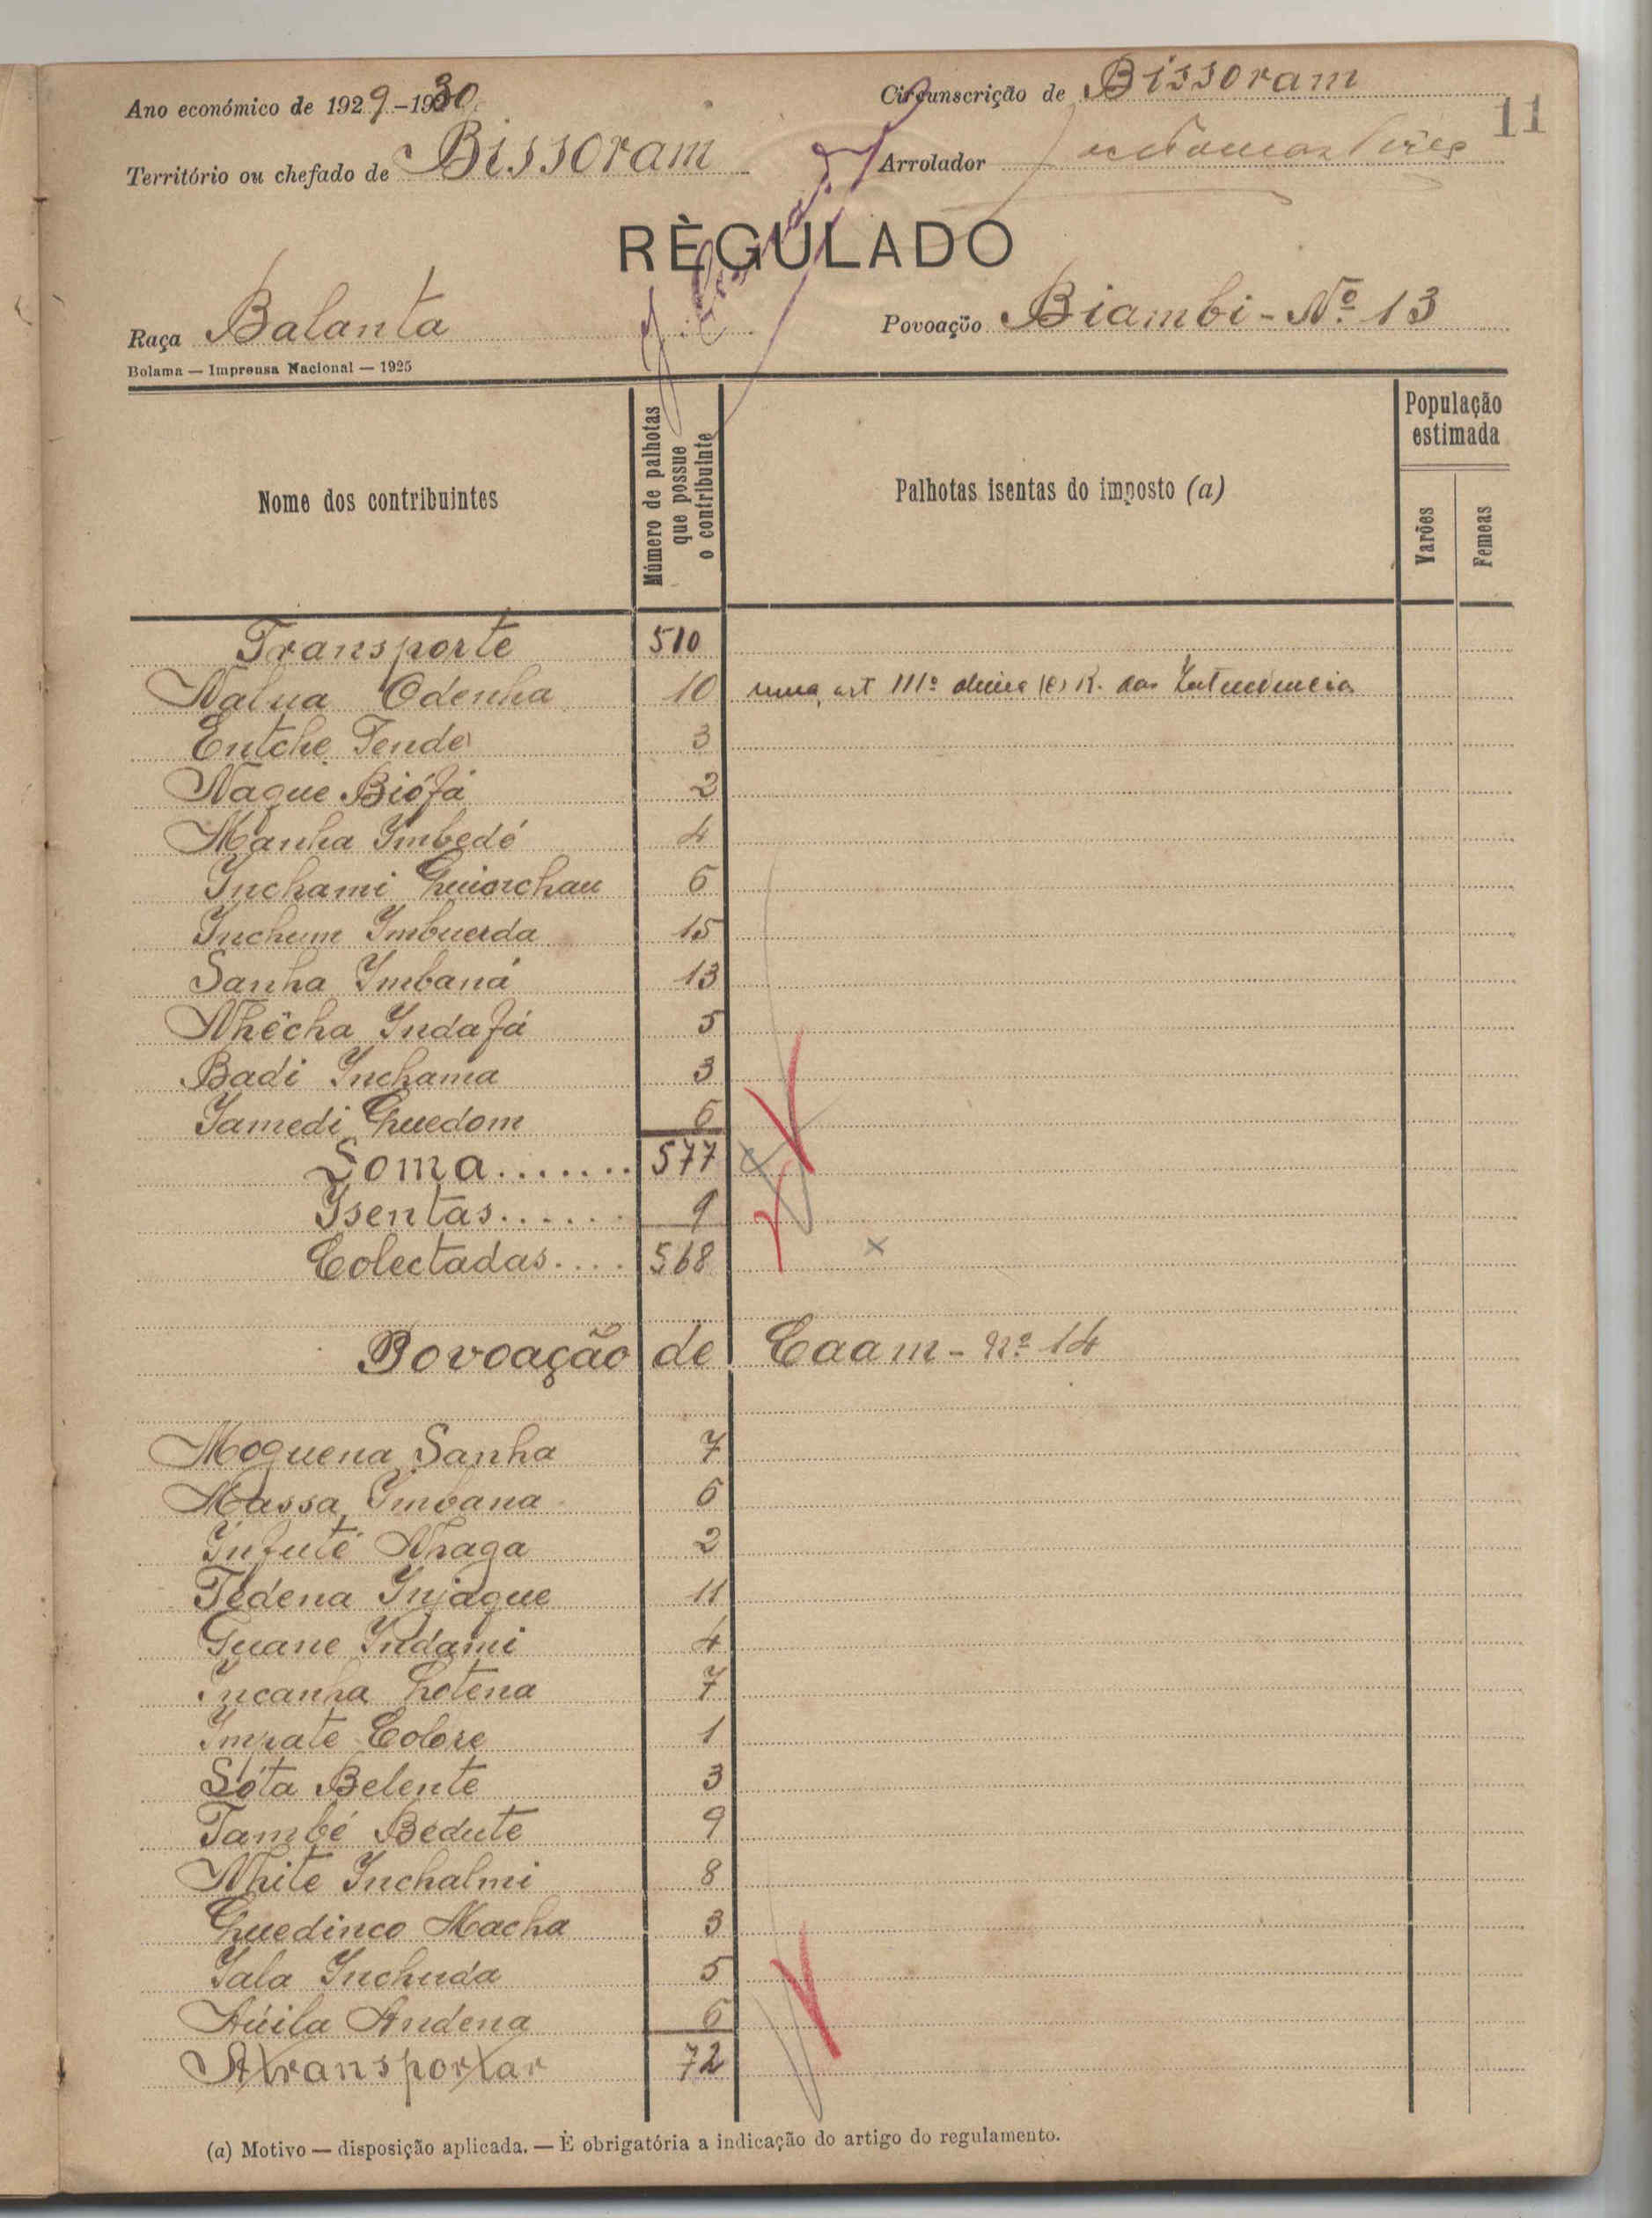 Ano económico de 1929-1930
Circunscrição de Bissoram
11
Território ou chefado de Bissoram
Arrolador
RÈGULADO
Raça Balanta
Povoação Biambi - Nº 13
Bolama — Imprensa Nacional — 1925
Nome dos contribuintes
Número de palhotas que possue o contribuinte
Palhotas isentas do imposto (a)
População estimada
Varões
Femeas
Transporte 510
Nalua Odenha 10 uma art 111º
Entche Tende 3
Naque Biófá 2
Manha Imbedé 4
Inchami 6
Inchum Imbuerda 15
Sanha Imbaná 13
Nhêcha Indafá 5
Badi Inchama 3
Iamedi Quedom 6
Soma....... 577
Isentas...... 9
Colectadas.... 568
Povoação de Caam - nº 14
Moquena Sanha 7
Massa Imbana 6
Infuté Nhaga 2
Tedena Injaque 11
Guane Indami 4
Incanha Cotena 7
Colore 1
Sóta Belente 3
També Bedute 9
Nhite Inchalmi 8
Quedinco Macha 3
Iala Inchuda 5
Aúila Andena 6
A transportar 72
(a) Motivo — disposição aplicada. — È obrigatória a indicação do artigo do regulamento.